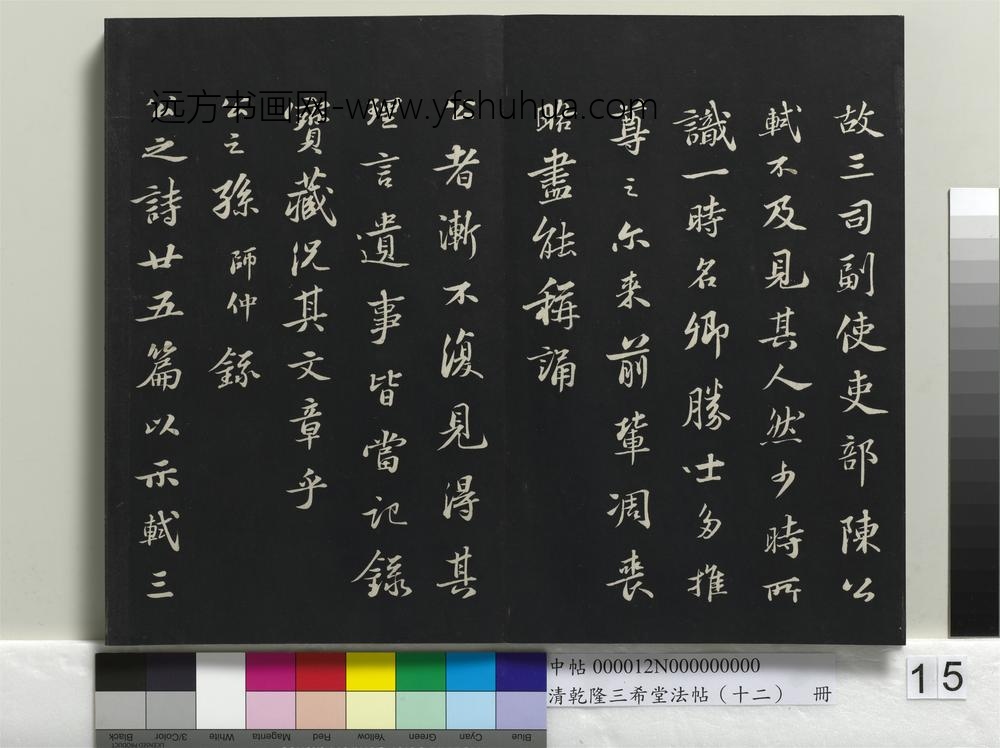 故三司副使吏部陳公
軾不及見其人然少時所
識一時名卿勝士多推
尊之尔来前輩凋喪
略盡能稱誦
公者漸不復見得其
理言遺事皆當記錄
寶藏況其文章乎
公之孫師仲錄
公之詩廿五篇以示軾三
远方书画网-www.yfshuhua.com
中帖 000012N000000000
清乾隆三希堂法帖（十二） 冊
15
Blue Cyan Green Yellow Red Magenta White 3/Color Black